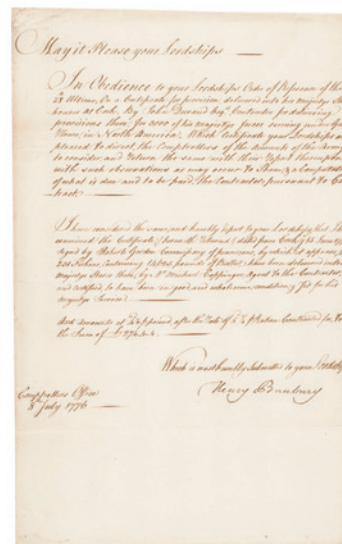 May it Please your Lordships
In Obedience to your Lordships Order of Reference of the
28 Ultimo, On a Certificate for provisions delivered into his Majestys Store
houses at Cork, By John Durand Esqr. Contractor for delivering
provisions there, for 2000 of his Majestys forces serving under General
Howe, in North America, Which Certificate your Lordships are
pleased to direct, the Comptrollers of the Accounts of the Army
to consider, and Return the same with their Report thereupon
with such observations as may occur to them, & a Computation
of what is due and to be paid, the Contractor, pursuant to Con
tract.
I have considered the same, and humbly report to your Lordships, that I have
examined the Certificate
signed by Robert Gordon Commissary of provisions, by which it appears,
Firkins, Containing pounds of Butter, has been delivered into
Majestys Stores there, by Agent to the Contractor,
and Certified, to have been in good, and wholesome, condition, & fit for his
Majestys Service
And Amounts at
the Sum of
Which is most humbly Submitted to your Lordships
Henry Bunbury
Comptrollers Office
July 1776